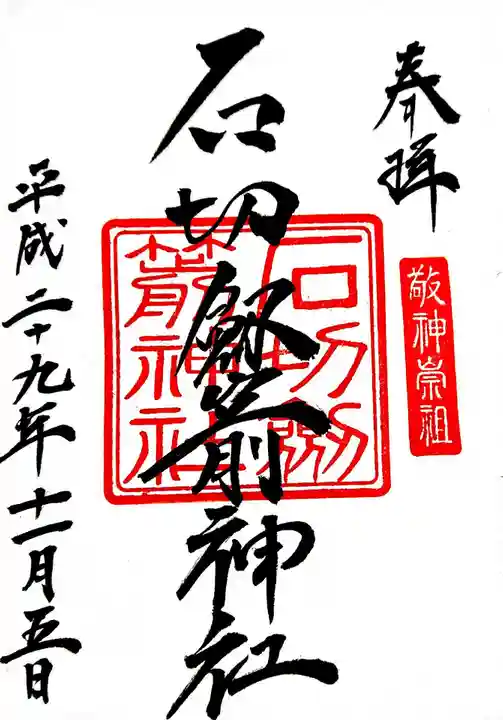 奉拝
敬神崇祖
石切劔箭神社
石切劔
箭神社
平成二十九年十一月五日